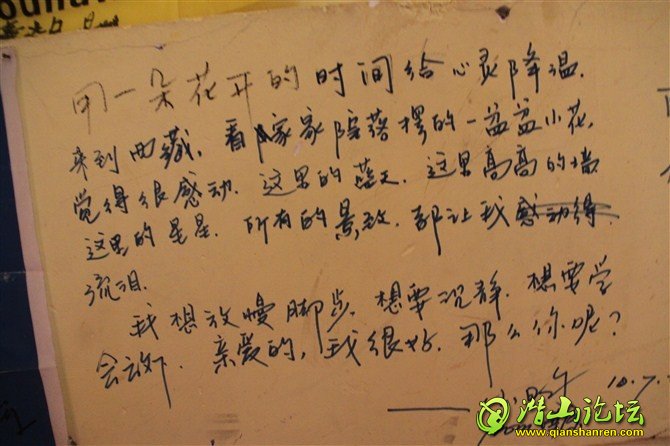 用一朵花开的时间给心灵降温.
来到西藏, 看家家院落摆的一盆盆小花,
觉得很感动. 这里的蓝天. 这里高高的墙
这里的星星. 所有的景致. 都让我感动得
流泪.
我想放慢脚步. 想要沉静. 想要学
会放下. 亲爱的, 我很好. 那么你呢?
10.7.
潜山论坛
www.qianshanren.com